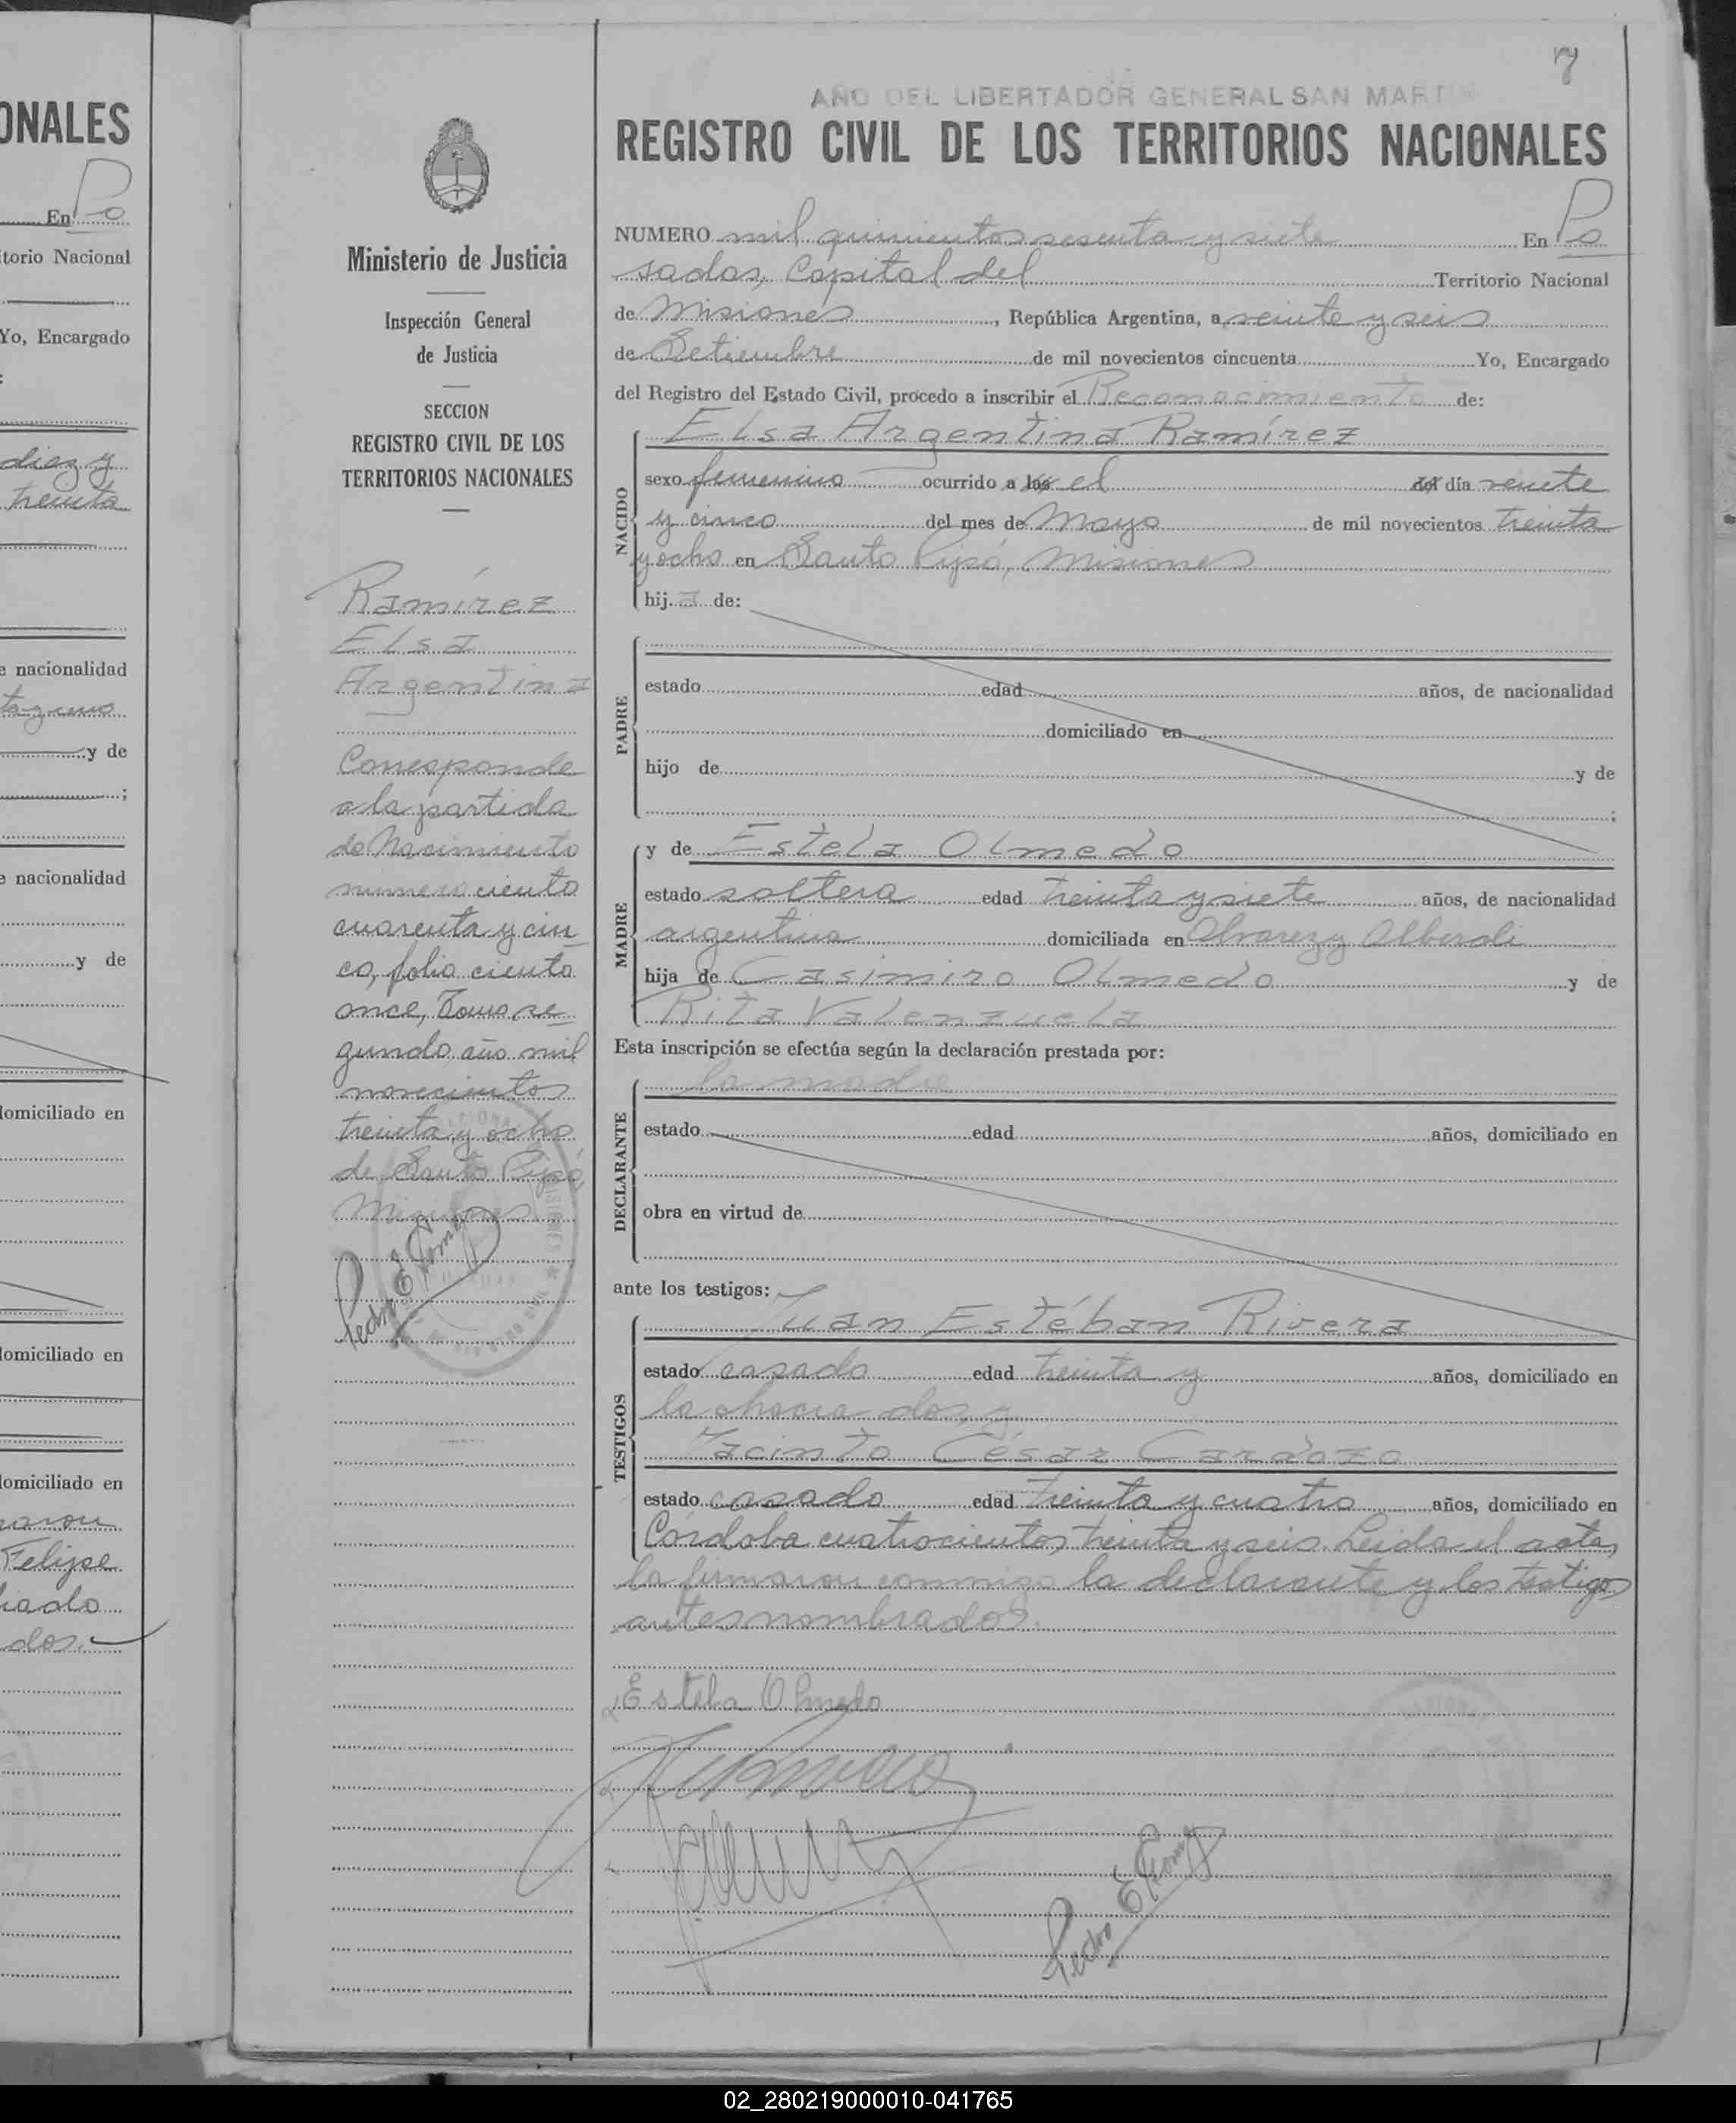 ONALES
En Po
torio Nacional
Yo, Encargado
diez y
treinta
e nacionalidad
y de
;
e nacionalidad
y de
domiciliado en
domiciliado en
domiciliado en
Felipe
dos.
Ministerio de Justicia
Inspección General
de Justicia
SECCION
REGISTRO CIVIL DE LOS
TERRITORIOS NACIONALES
Ramírez
Elsa
Argentina
Corresponde
a la partida
de Nacimiento
numero ciento
cuarenta y cin
co, folio ciento
once, Tomo se
gundo, año mil
novecientos
treinta y ocho
de Santo Pipó,
Misiones
7
AÑO DEL LIBERTADOR GENERAL SAN MARTIN
REGISTRO CIVIL DE LOS TERRITORIOS NACIONALES
NUMERO mil quinientos sesenta y siete En Po
sadas, Capital del Territorio Nacional
de Misiones, República Argentina, a veinte y seis
de Setiembre de mil novecientos cincuenta Yo, Encargado
del Registro del Estado Civil, procedo a inscribir el Reconocimiento de:
NACIDO
Elsa Argentina Ramírez
sexo femenino ocurrido a las el del día veinte
y cinco del mes de Mayo de mil novecientos treinta
y ocho en Santo Pipó, Misiones
hija de:
PADRE
estado edad años, de nacionalidad
domiciliado en
hijo de y de
;
MADRE
y de Estela Olmedo
estado soltera edad treinta y siete años, de nacionalidad
argentina domiciliada en Alvarez y Alberdi
hija de Casimiro Olmedo y de
Rita Valenzuela
Esta inscripción se efectúa según la declaración prestada por:
DECLARANTE
la madre
estado edad años, domiciliado en
obra en virtud de
ante los testigos:
TESTIGOS
Juan Estéban Rivera
estado casado edad treinta y años, domiciliado en
la chacra dos, y
Jacinto César Cardozo
estado casado edad treinta y cuatro años, domiciliado en
Córdoba cuatrocientos treinta y seis. Leida el acta,
la firmaron conmigo la declarante y los testigos
antes nombrados.
Estela Olmedo
02_280219000010-041765